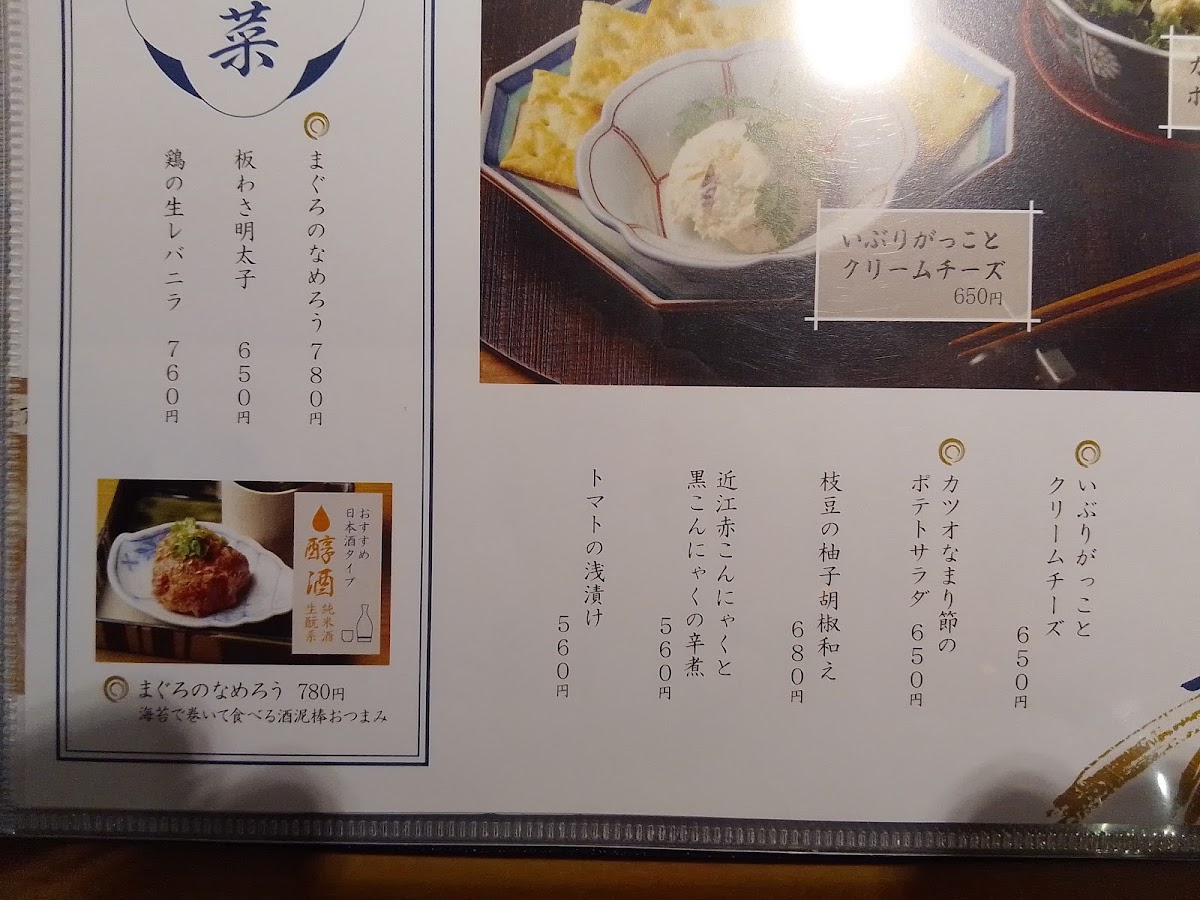 菜
まぐろのなめろう 780円
板わさ明太子 650円
鶏の生レバニラ 760円
おすすめ
日本酒タイプ
醇酒
純米酒
生酛系
まぐろのなめろう 780円
海苔で巻いて食べる酒泥棒おつまみ
いぶりがっこと
クリームチーズ
650円
いぶりがっこと
クリームチーズ
650円
カツオなまり節の
ポテトサラダ 650円
枝豆の柚子胡椒和え
680円
近江赤こんにゃくと
黒こんにゃくの辛煮
560円
トマトの浅漬け
560円